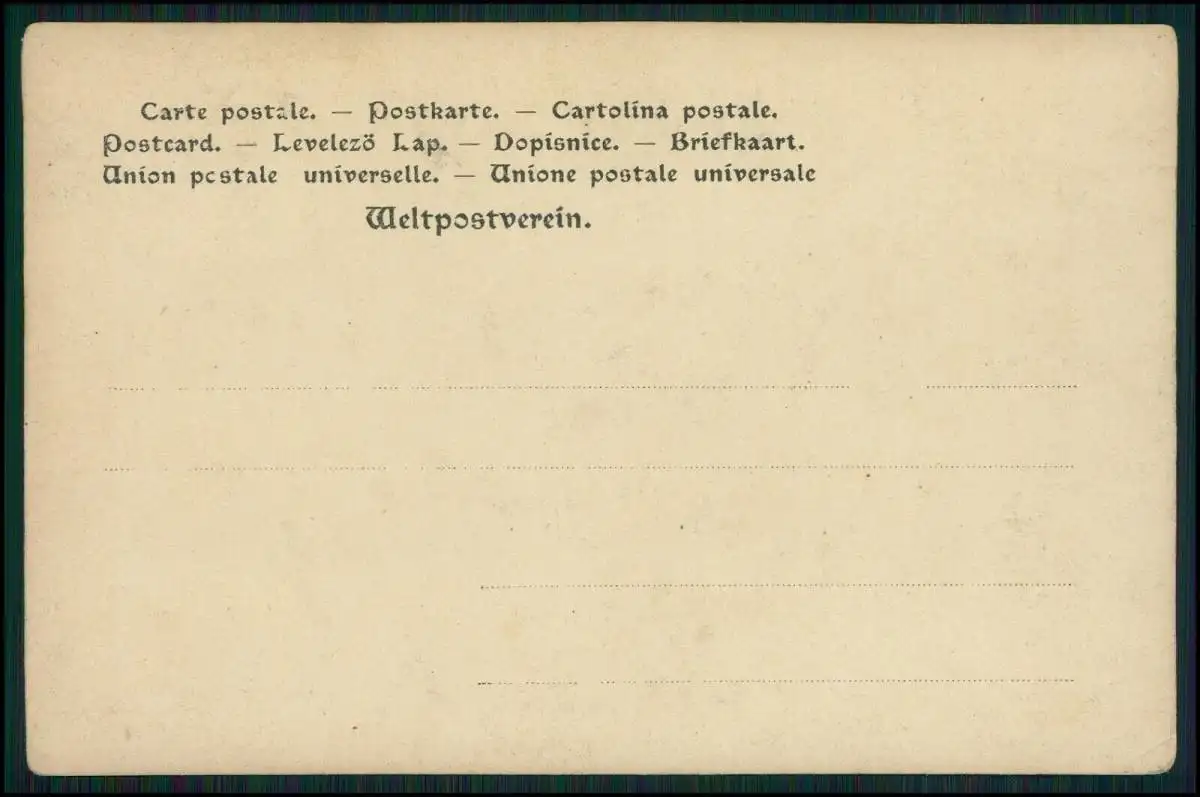 Carte postale. — Postkarte. — Cartolina postale.
Postcard. — Levelező Lap. — Dopisnice. — Briefkaart.
Union postale universelle. — Unione postale universale
Weltpostverein.